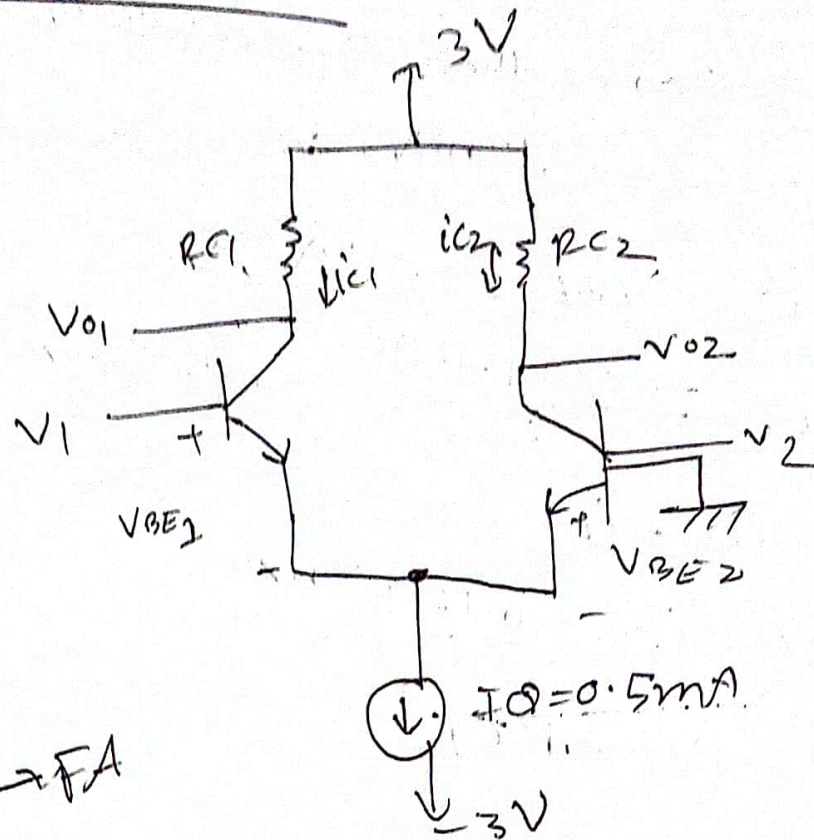 3V
RC1
ic1
ic2
RC2
VO1
VO2
V1
+
V2
VBE1
+
VBE2
-
-
IQ=0.5mA
→FA
-3V